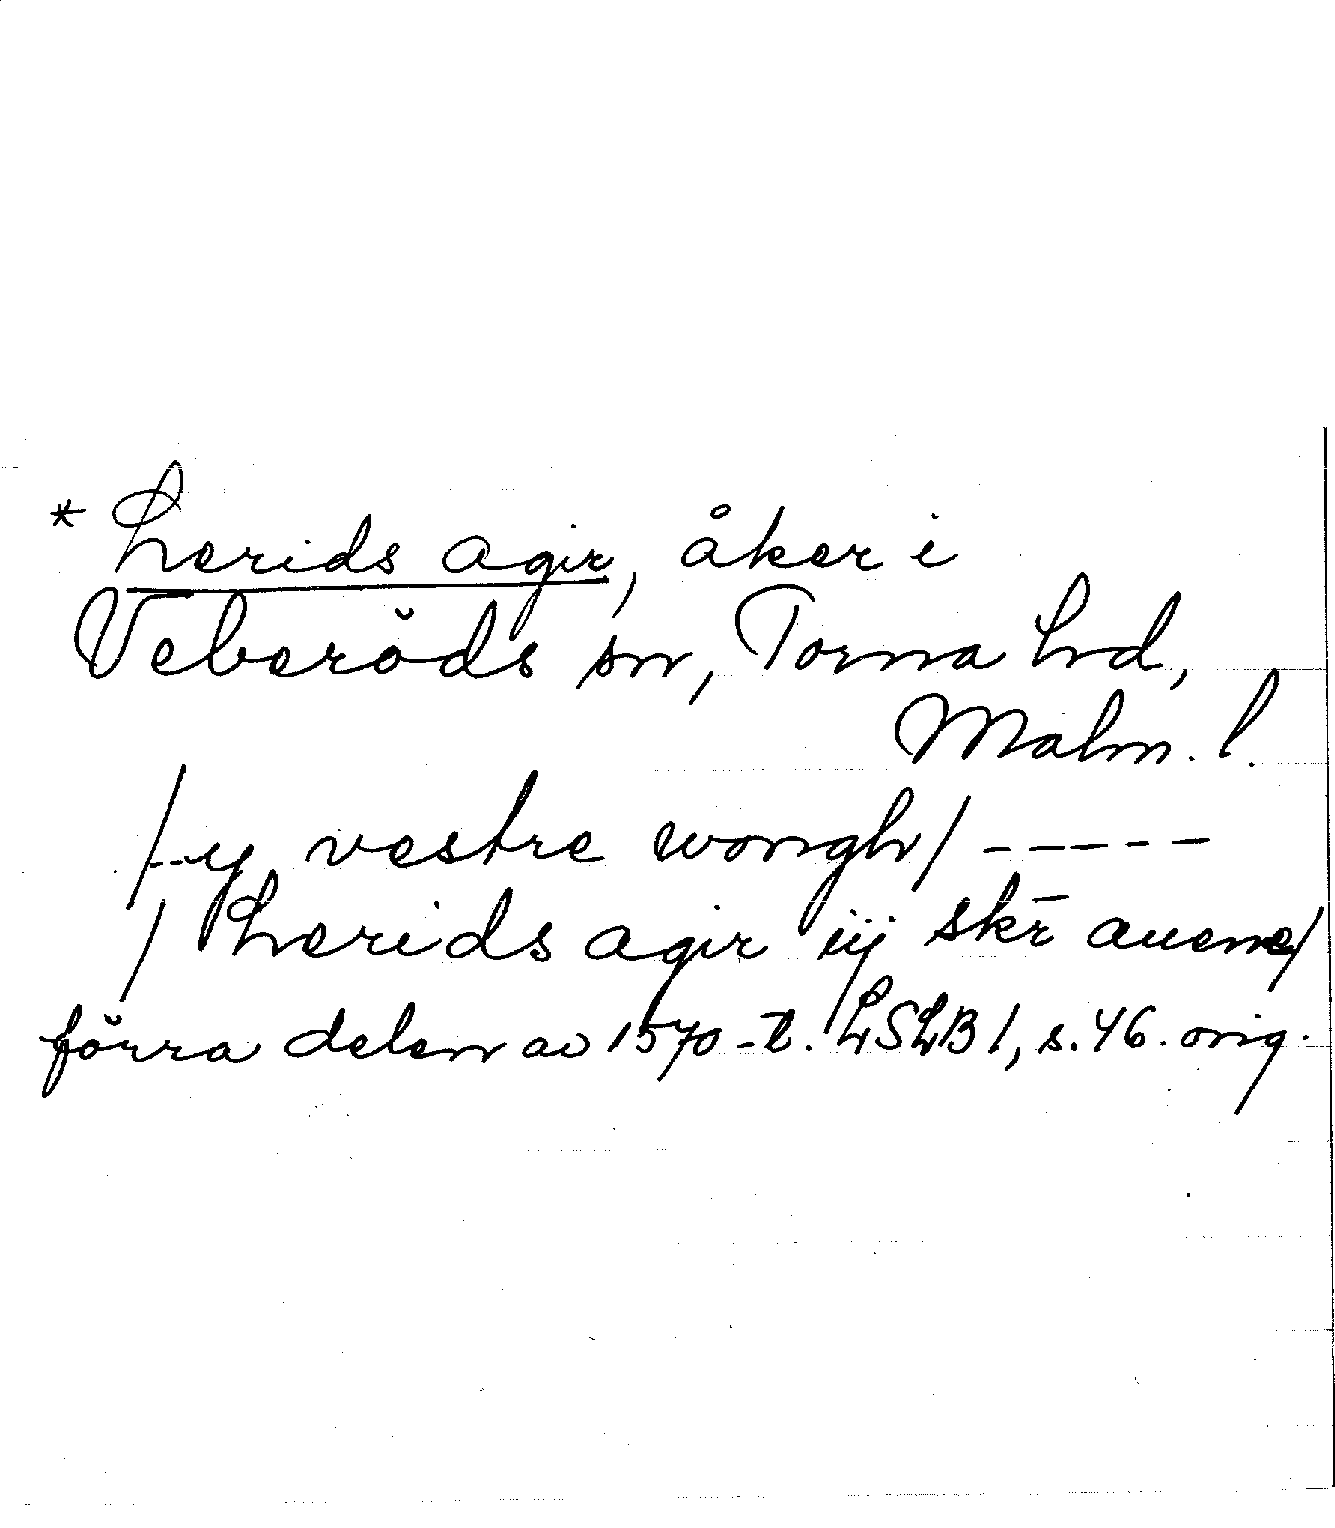 * Herids agir, åker i
Veberöds sn, Torna hd,
Malm. l.
/--y vestre wongh/ -----
/ Herids agir iij skr̄ auene/
förra delen av 1570-t. LSLB 1, s. 46. orig.